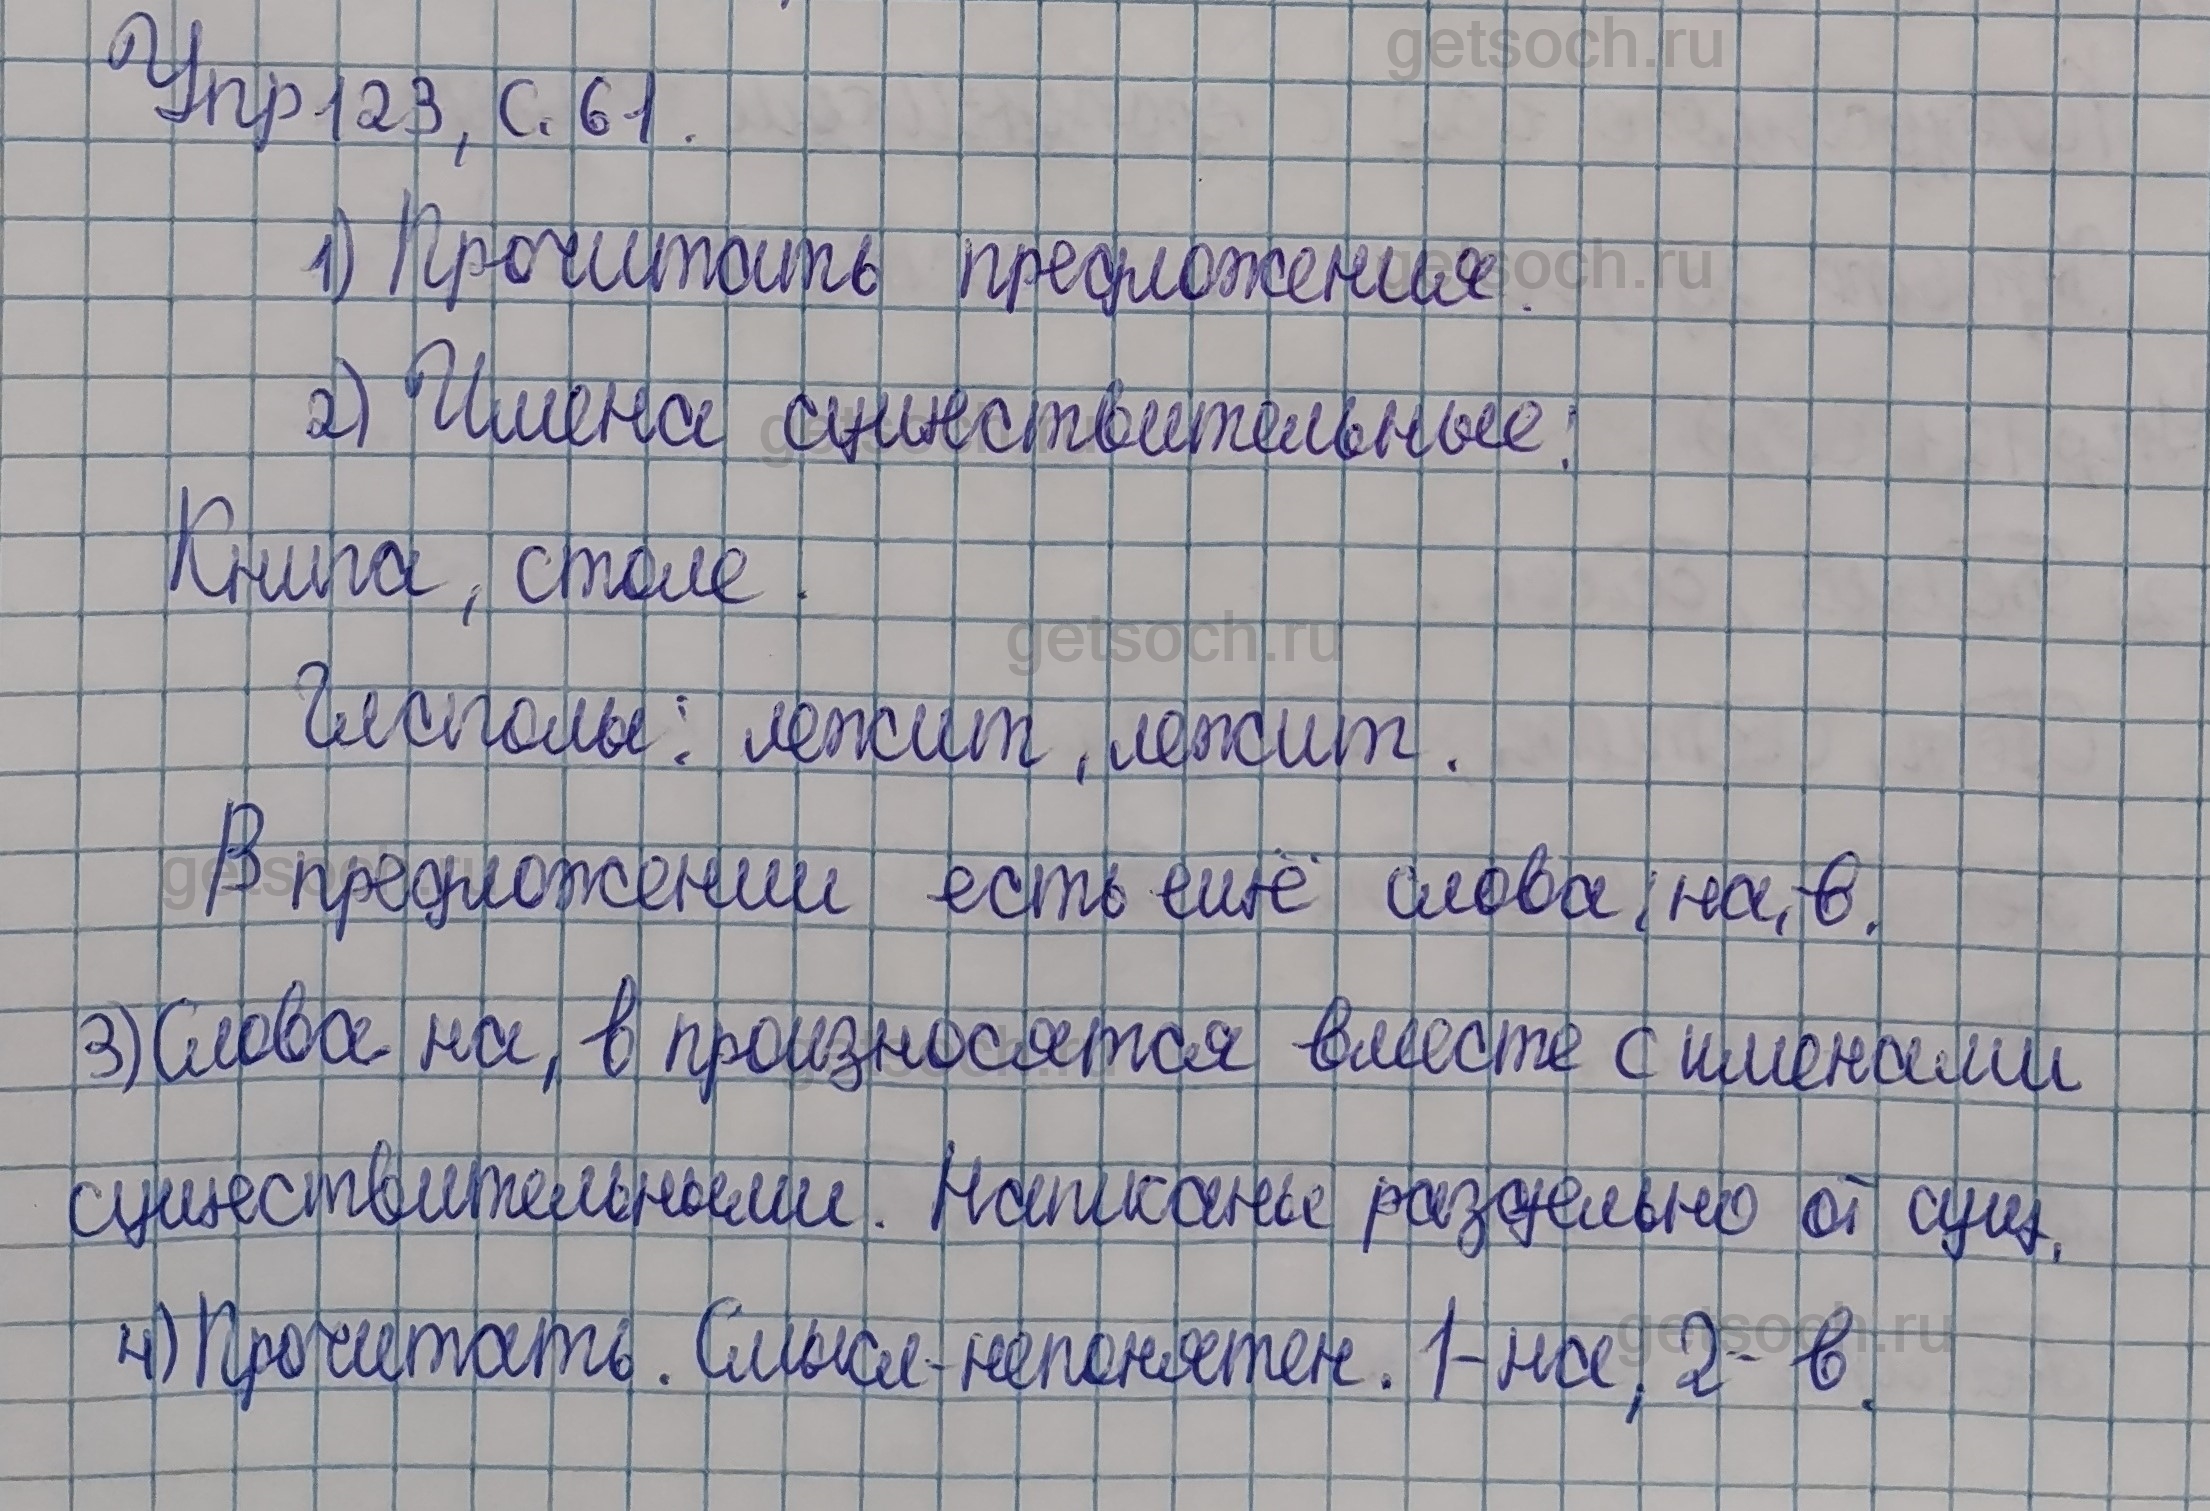 getsoch.ru
Упр 123, с. 61.
1) Прочитать предложения.
getsoch.ru
2) Имена существительные:
getsoch.ru
Книга, столе.
getsoch.ru
Глаголы: лежит, лежит.
В предложении есть ещё слова: на, в.
getsoch.ru
3) Слова на, в произносятся вместе с именами
getsoch.ru
существительными. Написаны раздельно от сущ.
4) Прочитать. Смысл - непонятен. 1 - на, 2 - в.
getsoch.ru